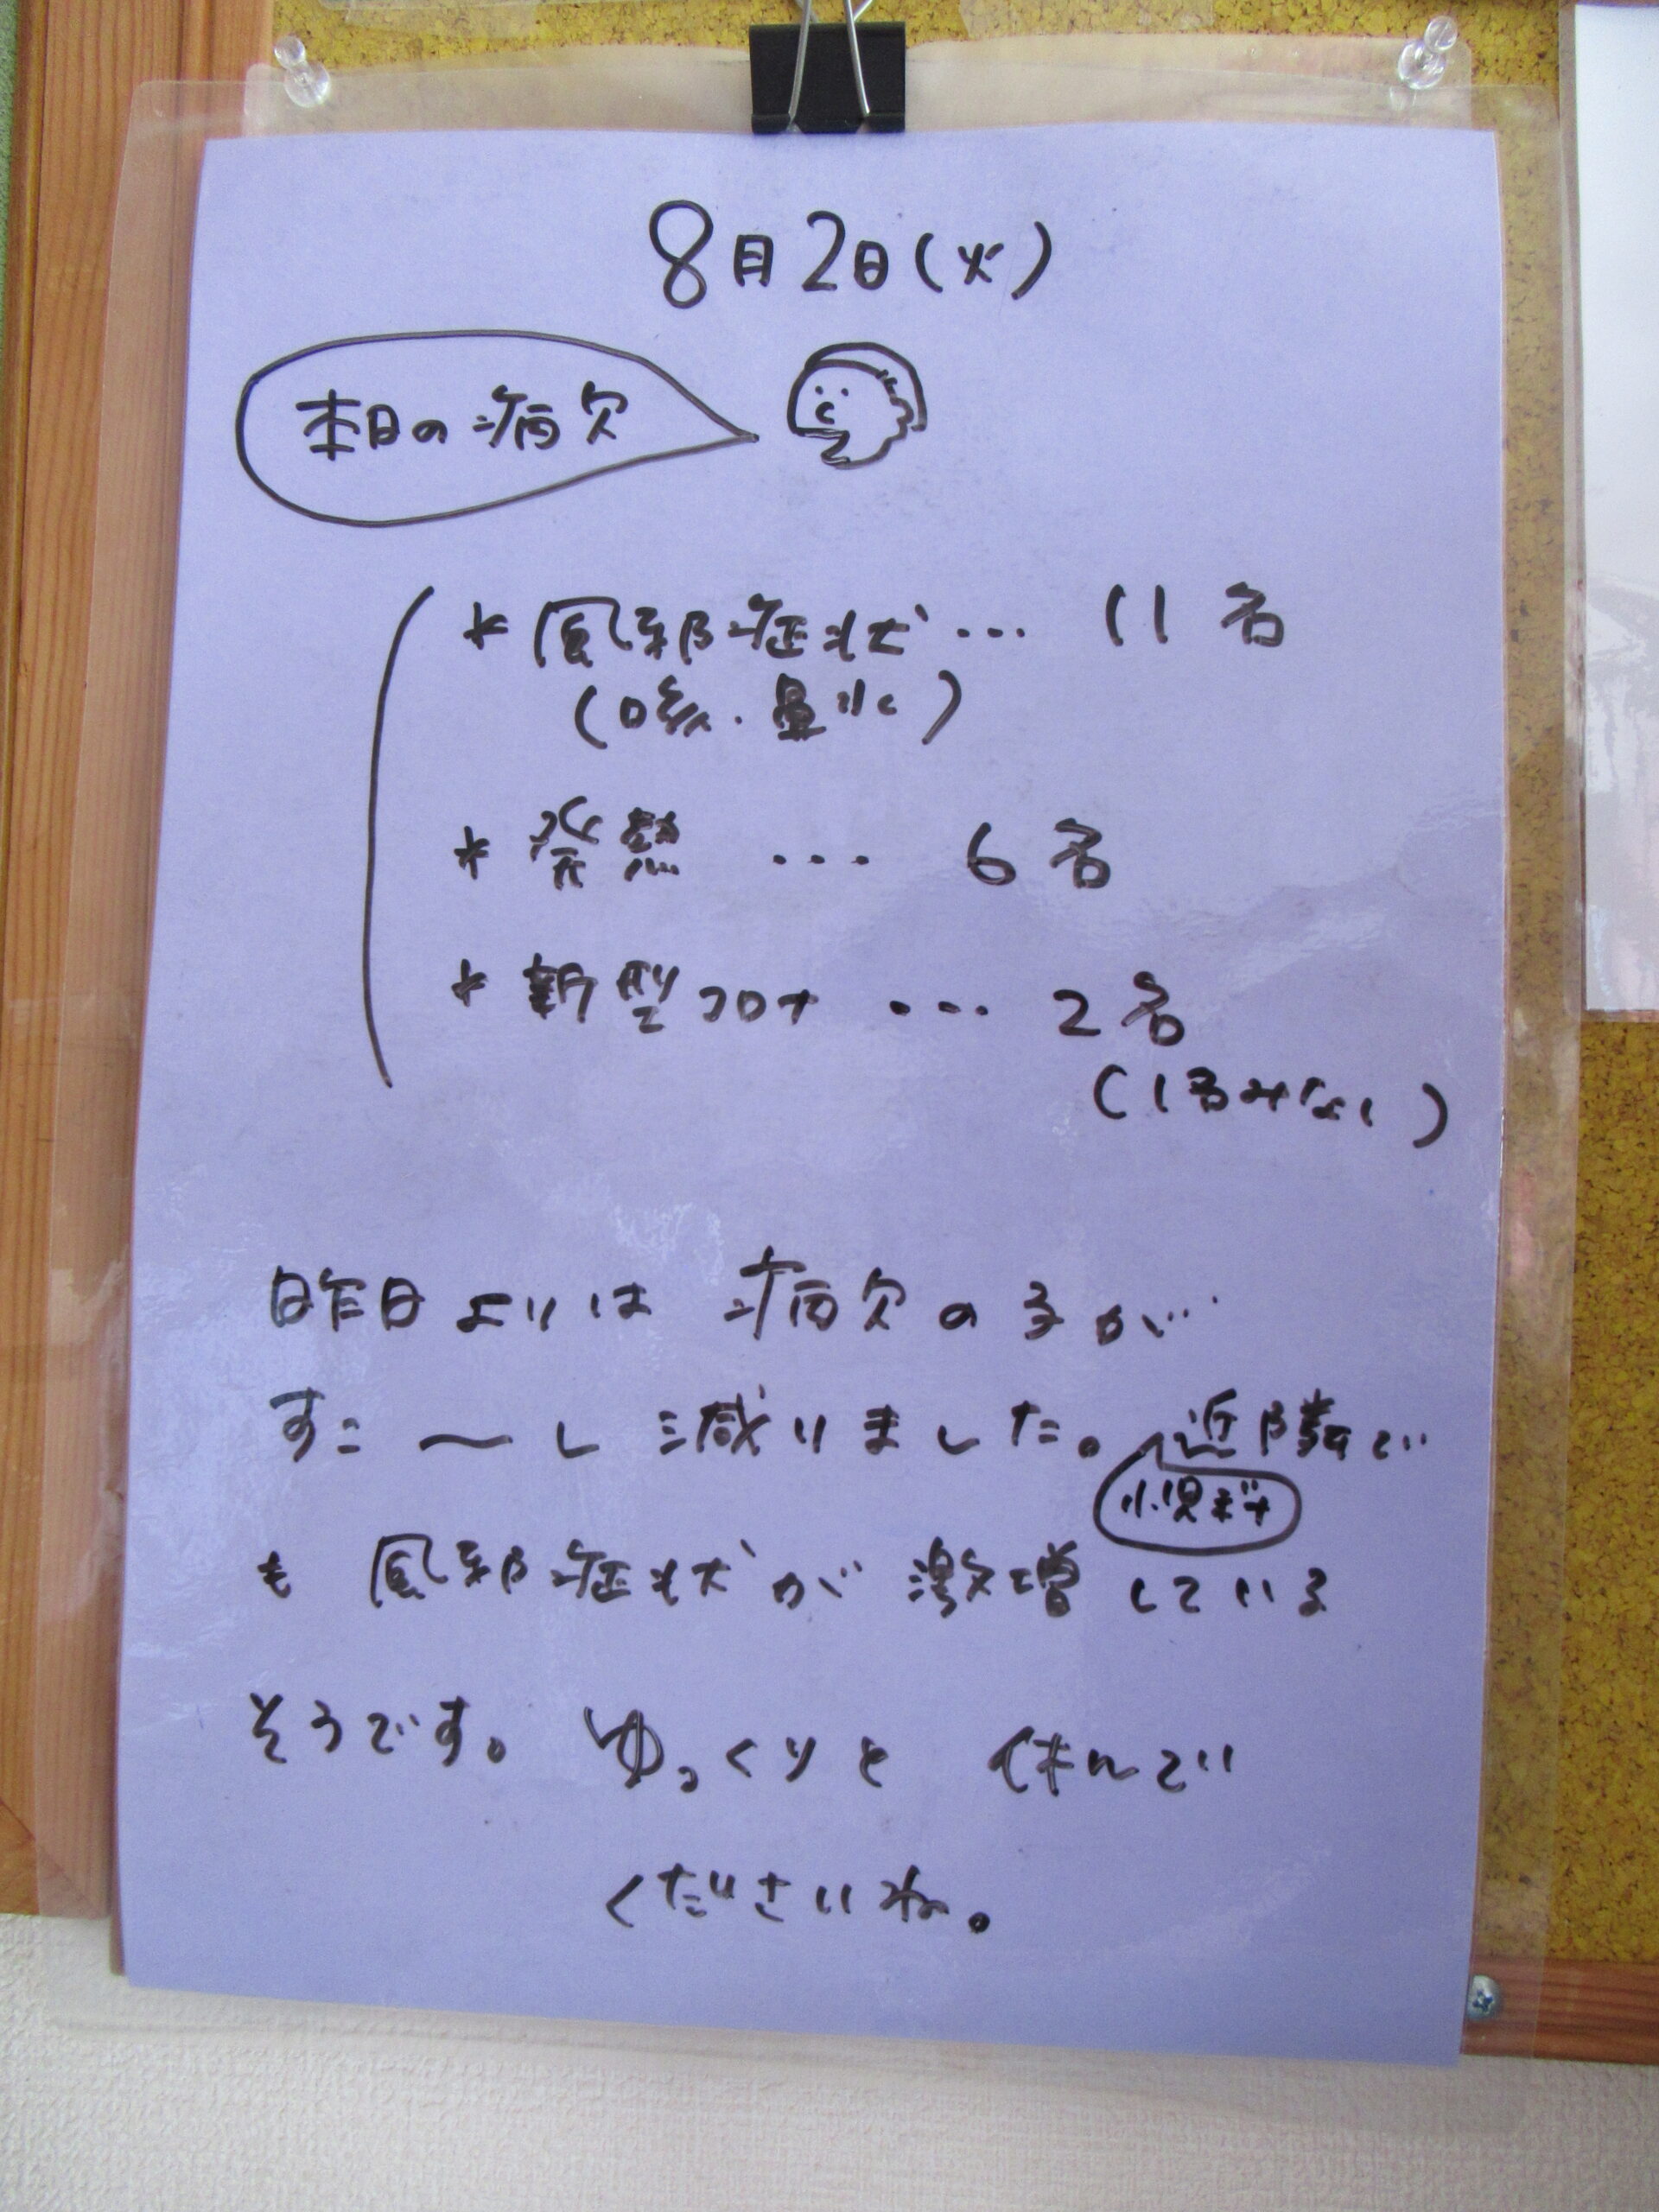 8月2日(火)
本日の病欠
* 風邪症状… 11名
(咳・鼻水)
* 発熱 … 6名
* 新型コロナ … 2名
(1名みなし)
昨日よりは 病欠の子が…
すこ〜し減りました。近隣で
小児科
も 風邪症状が激増している
そうです。ゆっくりと 休んで
くださいね。